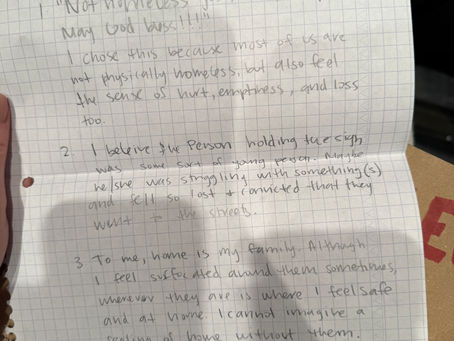 1 "Not homeless
May God bless!!!"
I chose this because most of us are
not physically homeless, but also feel
the sense of hurt, emptiness, and loss
too.
2. I beleive the Person holding the sign
was some sort of young person. Maybe
he/she was struggling with something(s)
and fell so lost + convicted that they
went to the streets.
3 To me, home is my family. Although
I feel suffocated around them sometimes,
wherever they are is where I feel safe
and at home. I cannot imagine a
feeling of home without them.
E